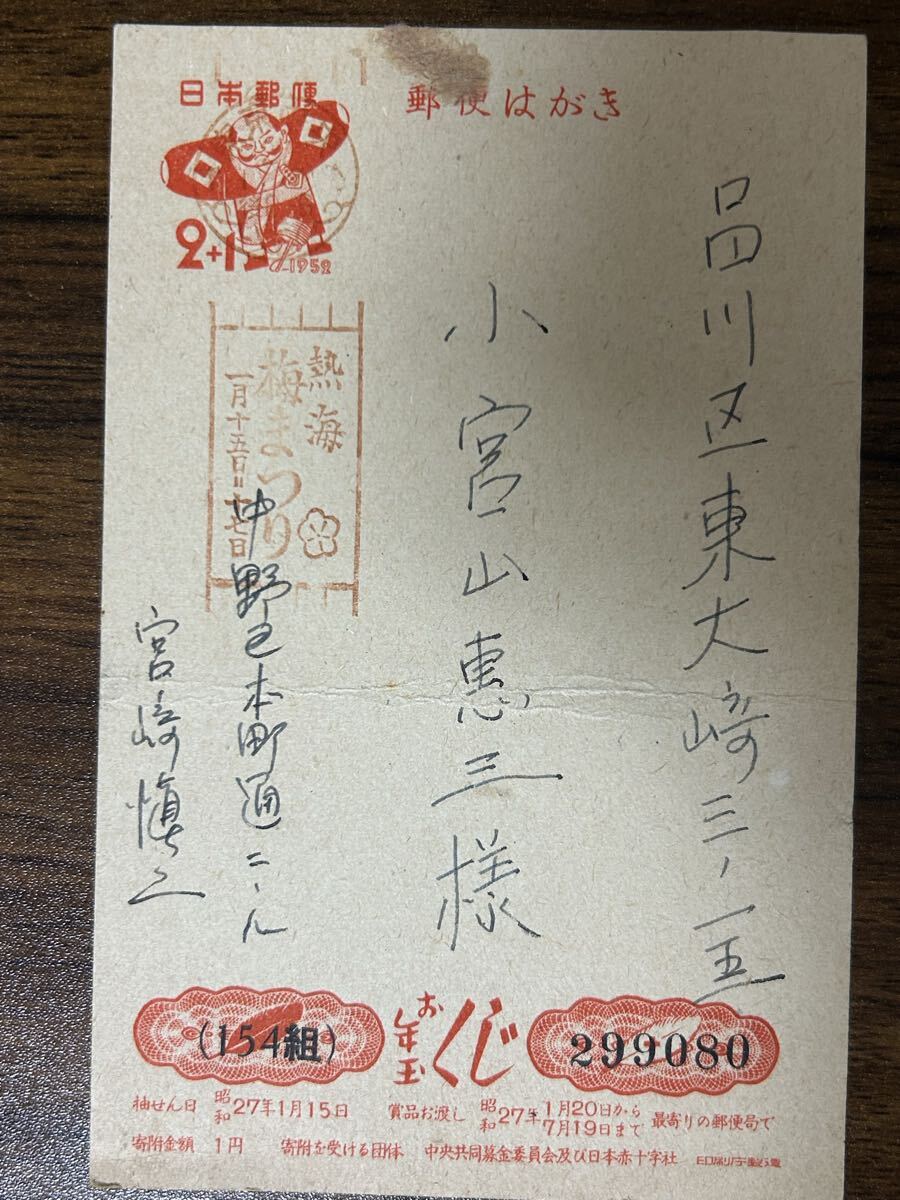 日本郵便
郵便はがき
2+1
1952
品川区東大崎三ノ一五
小宮山恵三様
熱海
梅まつり
一月十五日=十七日
中野区本町通二ノ
宮崎慎之
(154組)
お年玉くじ
299080
抽せん日 昭和27年1月15日 賞品お渡し 昭和27年1月20日から7月19日まで 最寄りの郵便局で
寄附金額 1円 寄附を受ける団体 中央共同募金委員会及び日本赤十字社